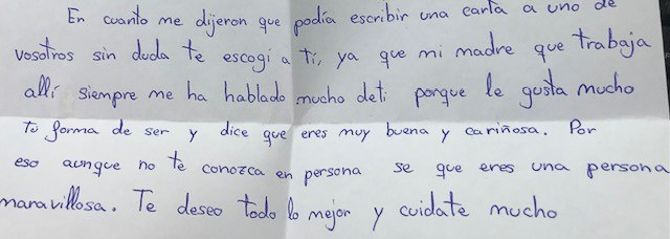 En cuanto me dijeron que podía escribir una carta a uno de
vosotros sin duda te escogí a ti, ya que mi madre que trabaja
allí siempre me ha hablado mucho deti porque le gusta mucho
tu forma de ser y dice que eres muy buena y cariñosa. Por
eso aunque no te conozca en persona se que eres una persona
maravillosa. Te deseo todo lo mejor y cuidate mucho